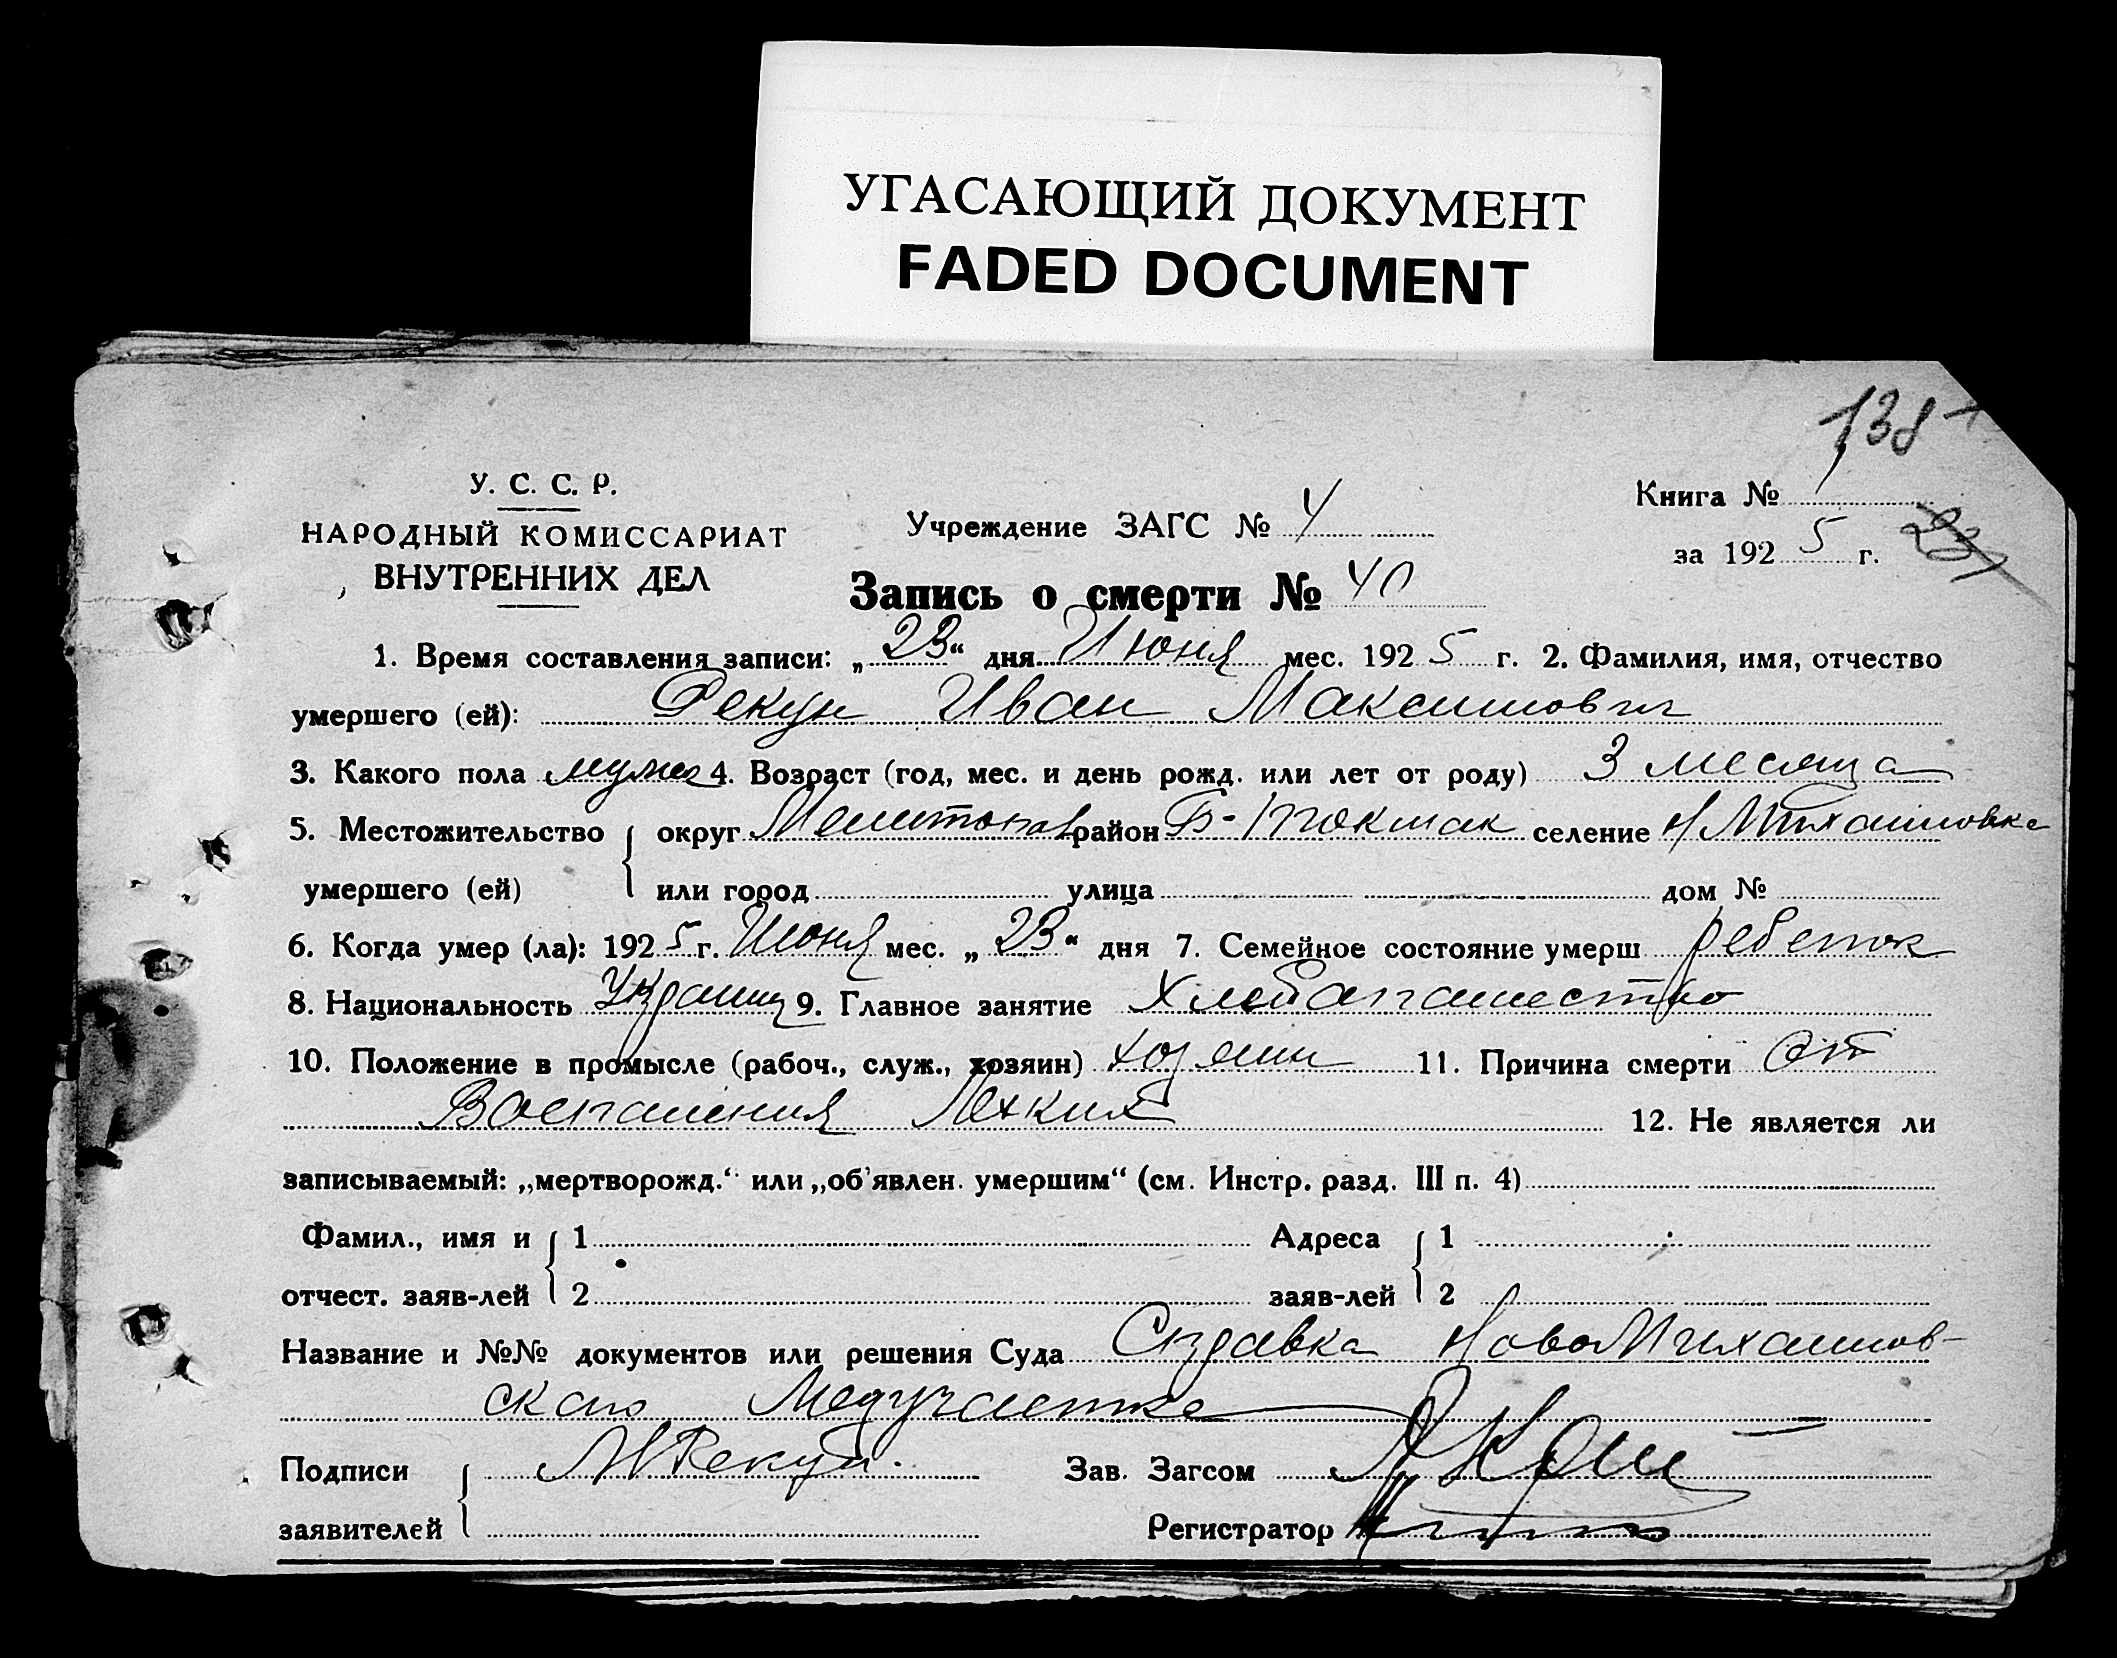 УГАСАЮЩИЙ ДОКУМЕНТ
FADED DOCUMENT
138
У. С. С. Р.
НАРОДНЫЙ КОМИССАРИАТ
ВНУТРЕННИХ ДЕЛ
Учреждение ЗАГС № 4
Книга № 1
за 1925 г. 231
Запись о смерти № 40
1. Время составления записи: „23“ дня Июня мес. 1925 г. 2. Фамилия, имя, отчество
умершего (ей): Рекун Иван Максимович
3. Какого пола мужск 4. Возраст (год, мес. и день рожд. или лет от роду) 3 месяца
5. Местожительство округ Мелитопол район Б-Токмак селение Н Михайловка
умершего (ей) или город улица дом №
6. Когда умер (ла): 1925 г. Июня мес. „23“ дня 7. Семейное состояние умерш ребенок
8. Национальность Украинц 9. Главное занятие Хлебопашество
10. Положение в промысле (рабоч., служ., хозяин) хозяин 11. Причина смерти От
Воспаления Легких 12. Не является ли
записываемый: „мертворожд.“ или „об'явлен. умершим“ (см. Инстр. разд. III п. 4)
Фамил., имя и 1 Адреса 1
отчест. заяв-лей 2 заяв-лей 2
Название и №№ документов или решения Суда Справка НовоМихайлов-
скаго Медучастка
Подписи М Рекун. Зав. Загсом
заявителей Регистратор